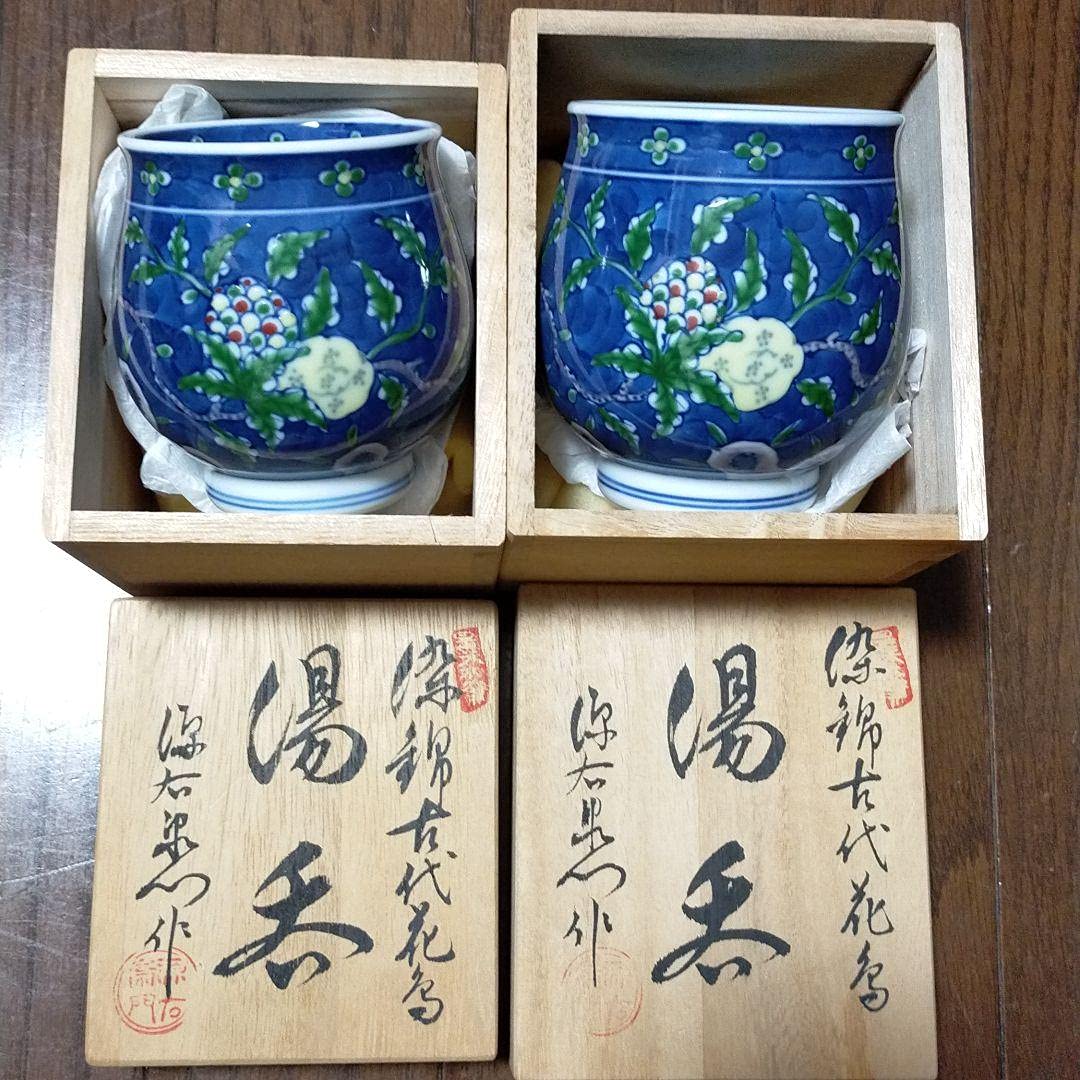 染錦古代花鳥
湯呑
源右衛門作
染錦古代花鳥
湯呑
源右衛門作